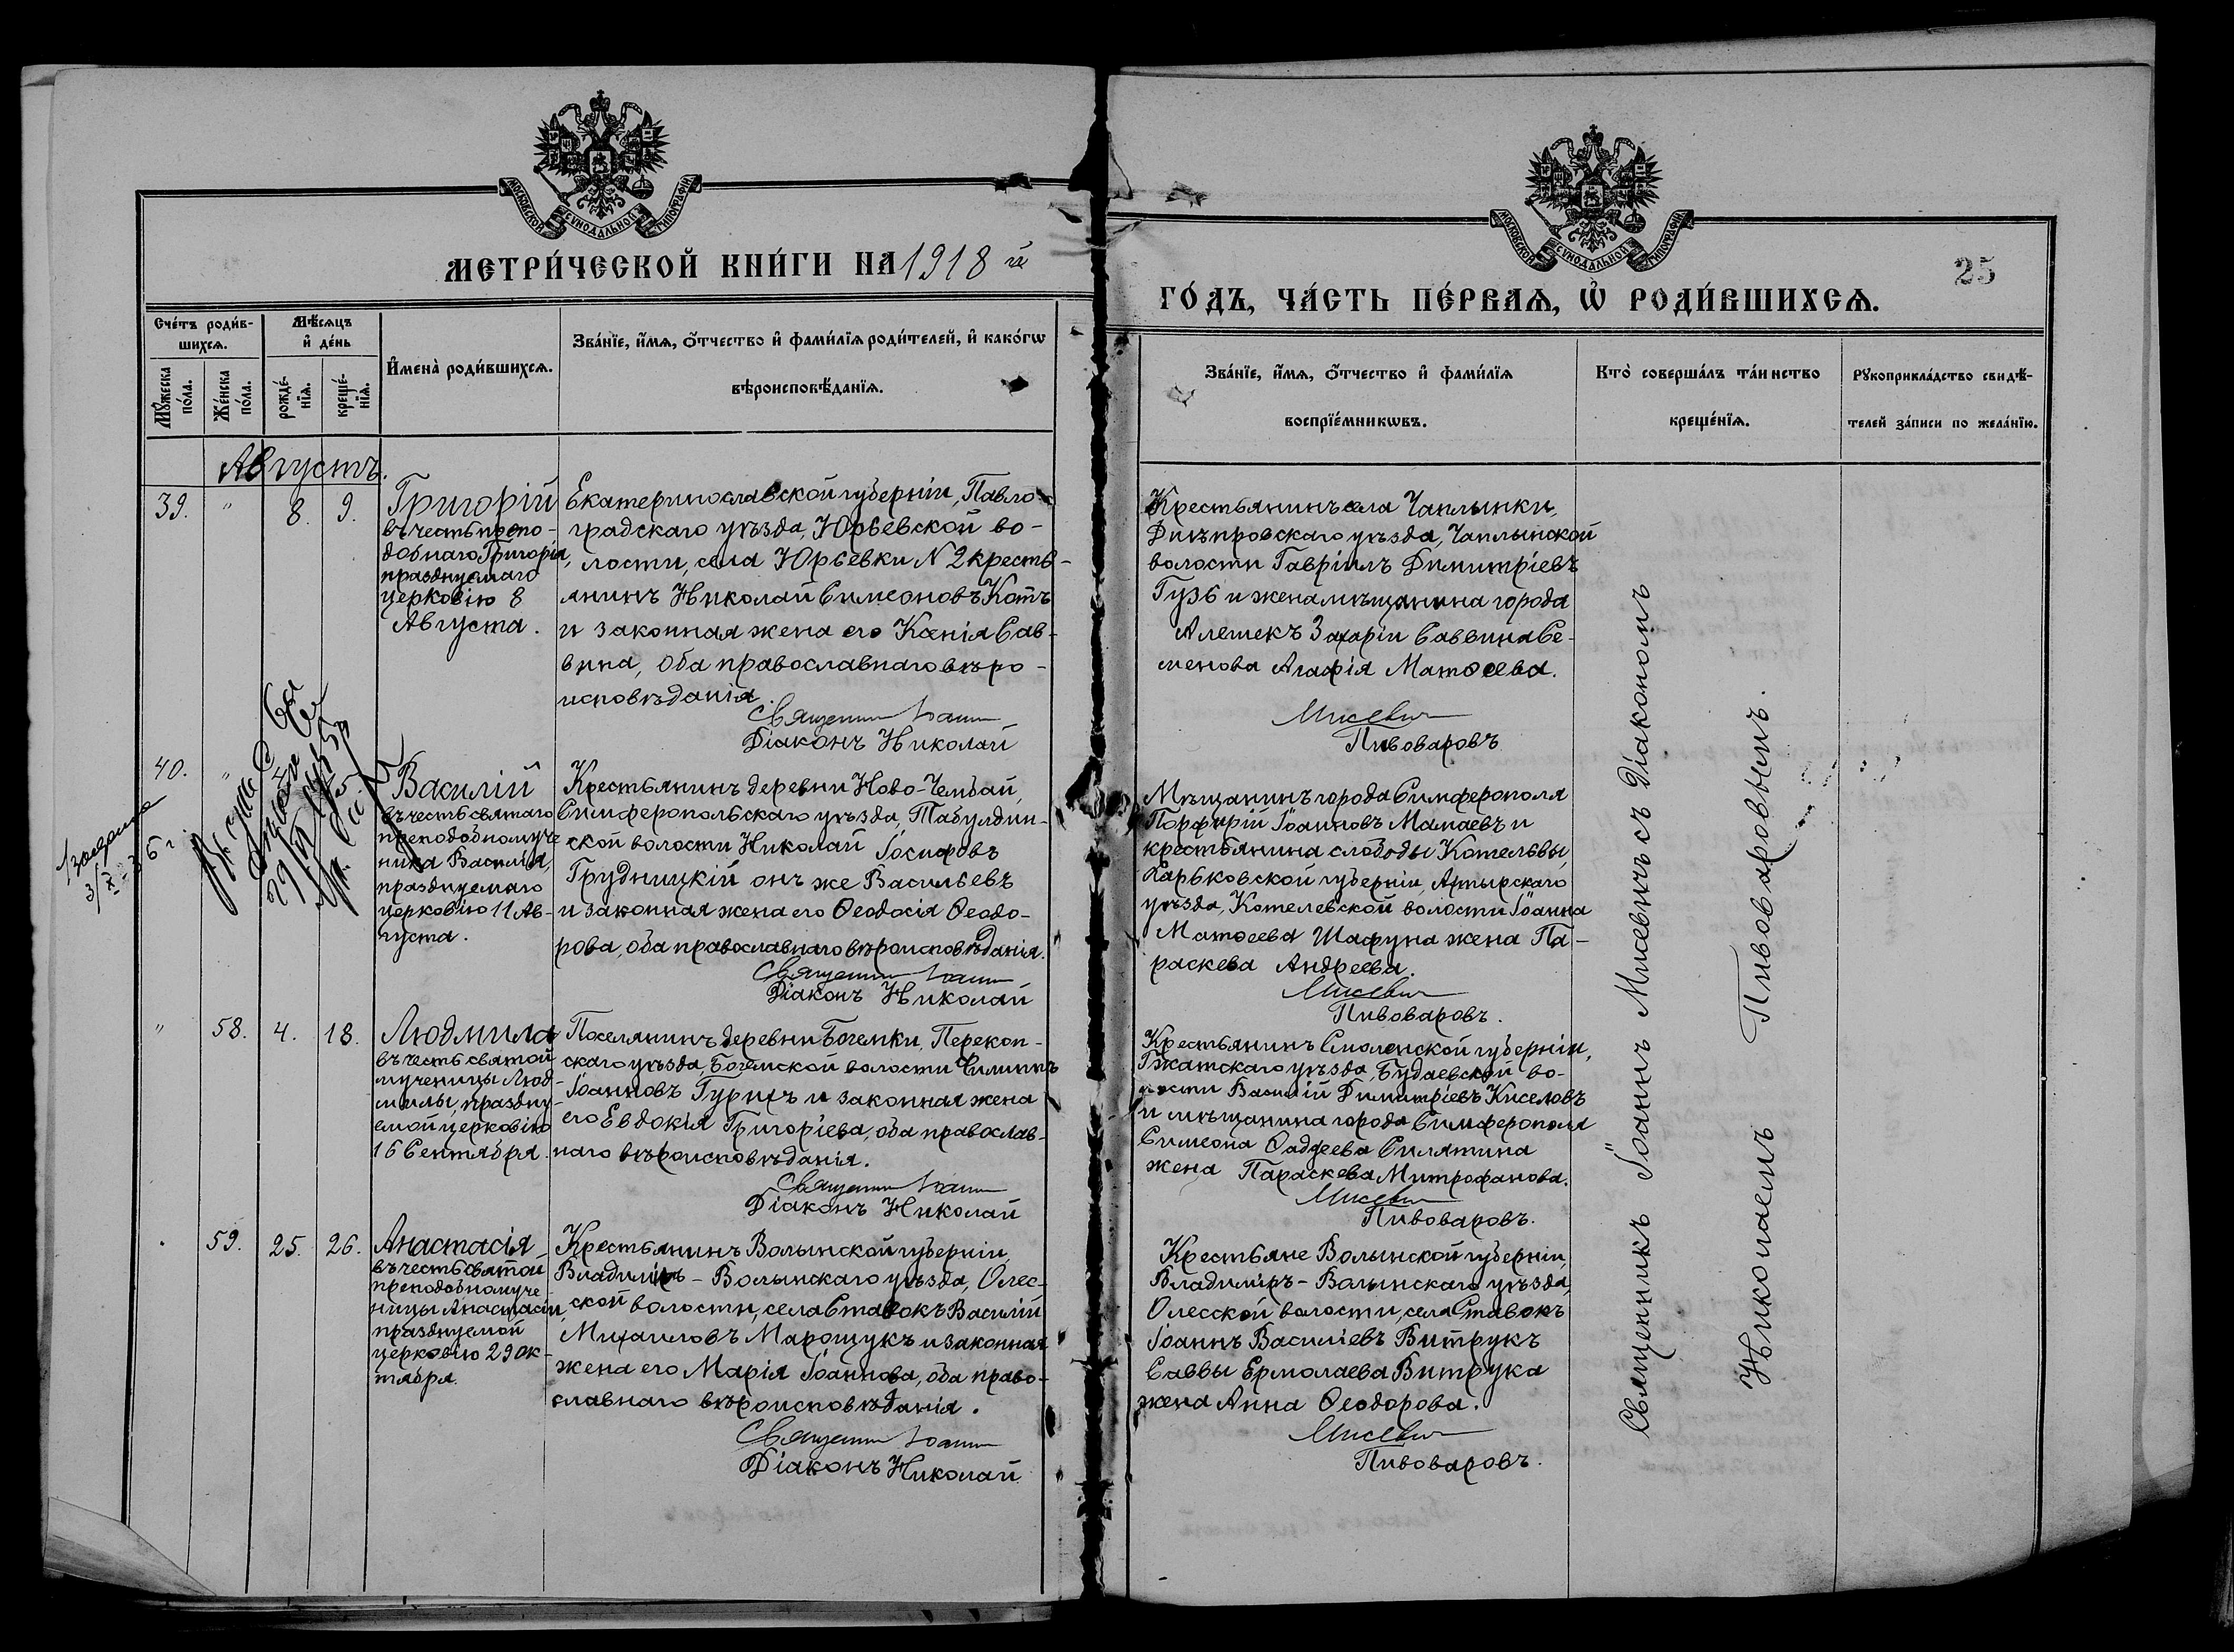 МОСКОВСКОЙ СѴНОДАЛЬНОЙ ТИПОГРАФІИ
МЕТРИ́ЧЕСКОЙ КНИ́ГИ НА 1918 й
Сче́тъ роди́в-
шихсѧ.
Мѣ́сѧцъ
и҆ де́нь
Мꙋ́жеска
по́ла.
Же́нска
по́ла.
рожде́-
нїѧ.
креще́-
нїѧ.
И҆мена̀ роди́вшихсѧ.
Зва́нїе, и҆́мѧ, ѻ҆́тчество и҆ фами́лїѧ роди́телей, и҆ како́гѡ
вѣроисповѣ́данїѧ.
Августъ.
39. " 8. 9.
Григорій
въ честь препо-
добнаго Григорія,
празднуемаго
церковію 8
Августа.
Екатеринославской губерніи, Павло-
градскаго уѣзда, Юрьевской во-
лости, села Юрьевки N 2 кресть-
янинъ Николай Симеоновъ Котъ
и законная жена его Ксенія Сав-
вина, оба православнаго вѣро-
исповѣданія.
Священникъ Іоаннъ
Діаконъ Николай
40. "
Василій
въ честь святаго
преподобномуче
ника Василія,
празднуемаго
церковію 11 Ав-
густа.
Крестьянинъ деревни Ново-Чембай,
Симферопольскаго уѣзда, Табулдин-
ской волости Николай Іосифовъ
Грудницкій онъ же Васильевъ
и законная жена его Ѳеодосія Ѳеодо-
рова, оба православнаго вѣроисповѣданія.
Священникъ Іоаннъ
Діаконъ Николай
" 58. 4. 18.
Людмила
въ честь святой
мученицы Люд-
милы, праздну-
емой церковію
16 Сентября.
Поселянинъ деревни Богемки, Перекоп-
скаго уѣзда, Богемской волости Филиппъ
Іоанновъ Гуричъ и законная жена
его Евдокія Григоріева, оба православ-
наго вѣроисповѣданія.
Священникъ Іоаннъ
Діаконъ Николай
59. 25. 26.
Анастасія
въ честь святой
преподобномуче
ницы Анастасіи,
празднуемой
церковію 29 Ок-
тября.
Крестьянинъ Волынской губерніи,
Владиміръ-Волынскаго уѣзда, Олес-
ской волости, села Ставокъ Василій
Михаиловъ Марощукъ и законная
жена его Марія Іоаннова, оба право-
славнаго вѣроисповѣданія.
Священникъ Іоаннъ
Діаконъ Николай
МОСКОВСКОЙ СѴНОДАЛЬНОЙ ТИПОГРАФІИ
25
ГО́ДЪ, ЧА́СТЬ ПЕ́РВАѦ, Ѡ҆ РОДИ́ВШИХСѦ.
Зва́нїе, и҆́мѧ, ѻ҆́тчество и҆ фами́лїѧ
воспрїе́мникѡвъ.
Кто̀ соверша́лъ та́инство
креще́нїѧ.
Рꙋкоприкла́дство свидѣ́-
телей за́писи по жела́нїю.
Крестьянинъ села Чаплынки,
Днѣпровскаго уѣзда, Чаплынской
волости Гавріилъ Димитріевъ
Гузь и жена мѣщанина города
Алешекъ Захаріи Саввина Се-
менова Агафія Матѳеева.
Мисевичъ
Пивоваровъ
Мѣщанинъ города Симферополя
Порфирій Іоанновъ Мамаевъ и
крестьянина слободы Котельвы,
Харьковской губерніи, Ахтырскаго
уѣзда, Котелевской волости Іоанна
Матѳеева Шафуна жена Па-
раскева Андреева.
Мисевичъ
Пивоваровъ.
Крестьянинъ Смоленской губерніи,
Гжатскаго уѣзда, Будаевской во-
лости Василій Димитріевъ Киселовъ
и мѣщанина города Симферополя
Симеона Ѳаддеева Силятина
жена Параскева Митрофанова.
Мисевичъ
Пивоваровъ.
Крестьяне Волынской губерніи,
Владиміръ-Волынскаго уѣзда,
Олесской волости, села Ставокъ
Іоаннъ Василіевъ Витрукъ
Саввы Ермолаева Витрука
жена Анна Ѳеодорова.
Мисевичъ
Пивоваровъ.
Священникъ Іоаннъ Мисевичъ съ Діакономъ
Николаемъ Пивоваровымъ.